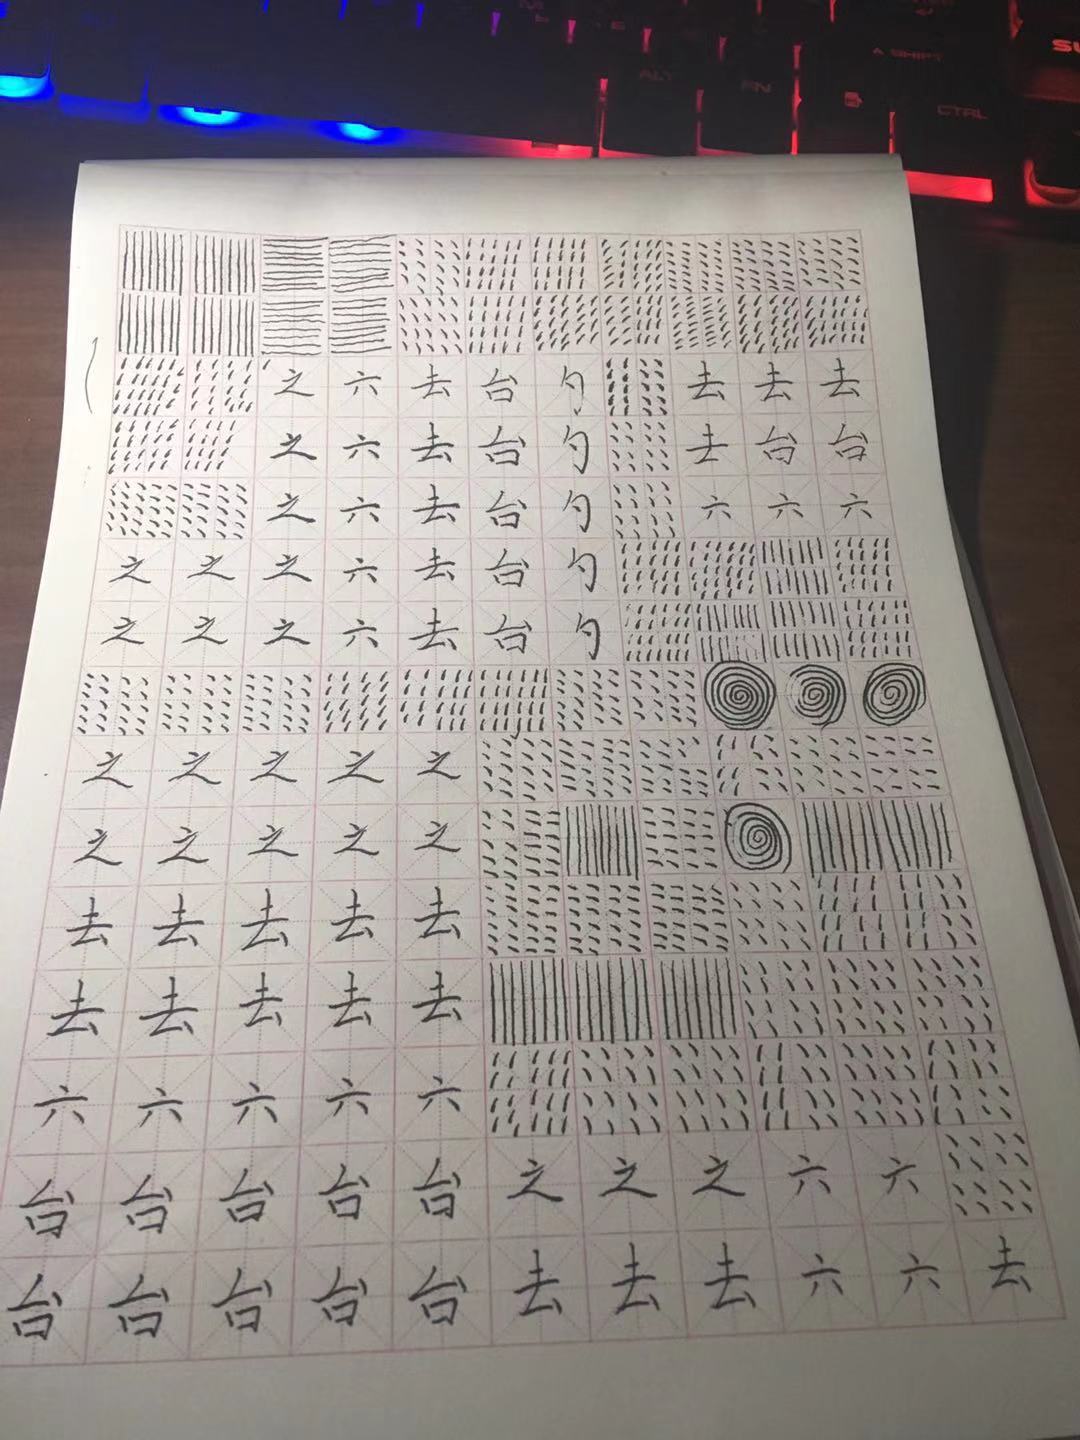 ALT FN SHIFT CTRL
之 六 去 台 勺 去 去 去
之 六 去 台 勺 去 台 台
之 六 去 台 勺 六 六 六
之 之 之 六 去 台 勺
之 之 之 六 去 台 勺
之 之 之 之 之
之 之 之 之 之
去 去 去 去 去
去 去 去 去 去
六 六 六 六 六
台 台 台 台 台 之 之 之 六 六
台 台 台 台 台 去 去 去 六 六 去